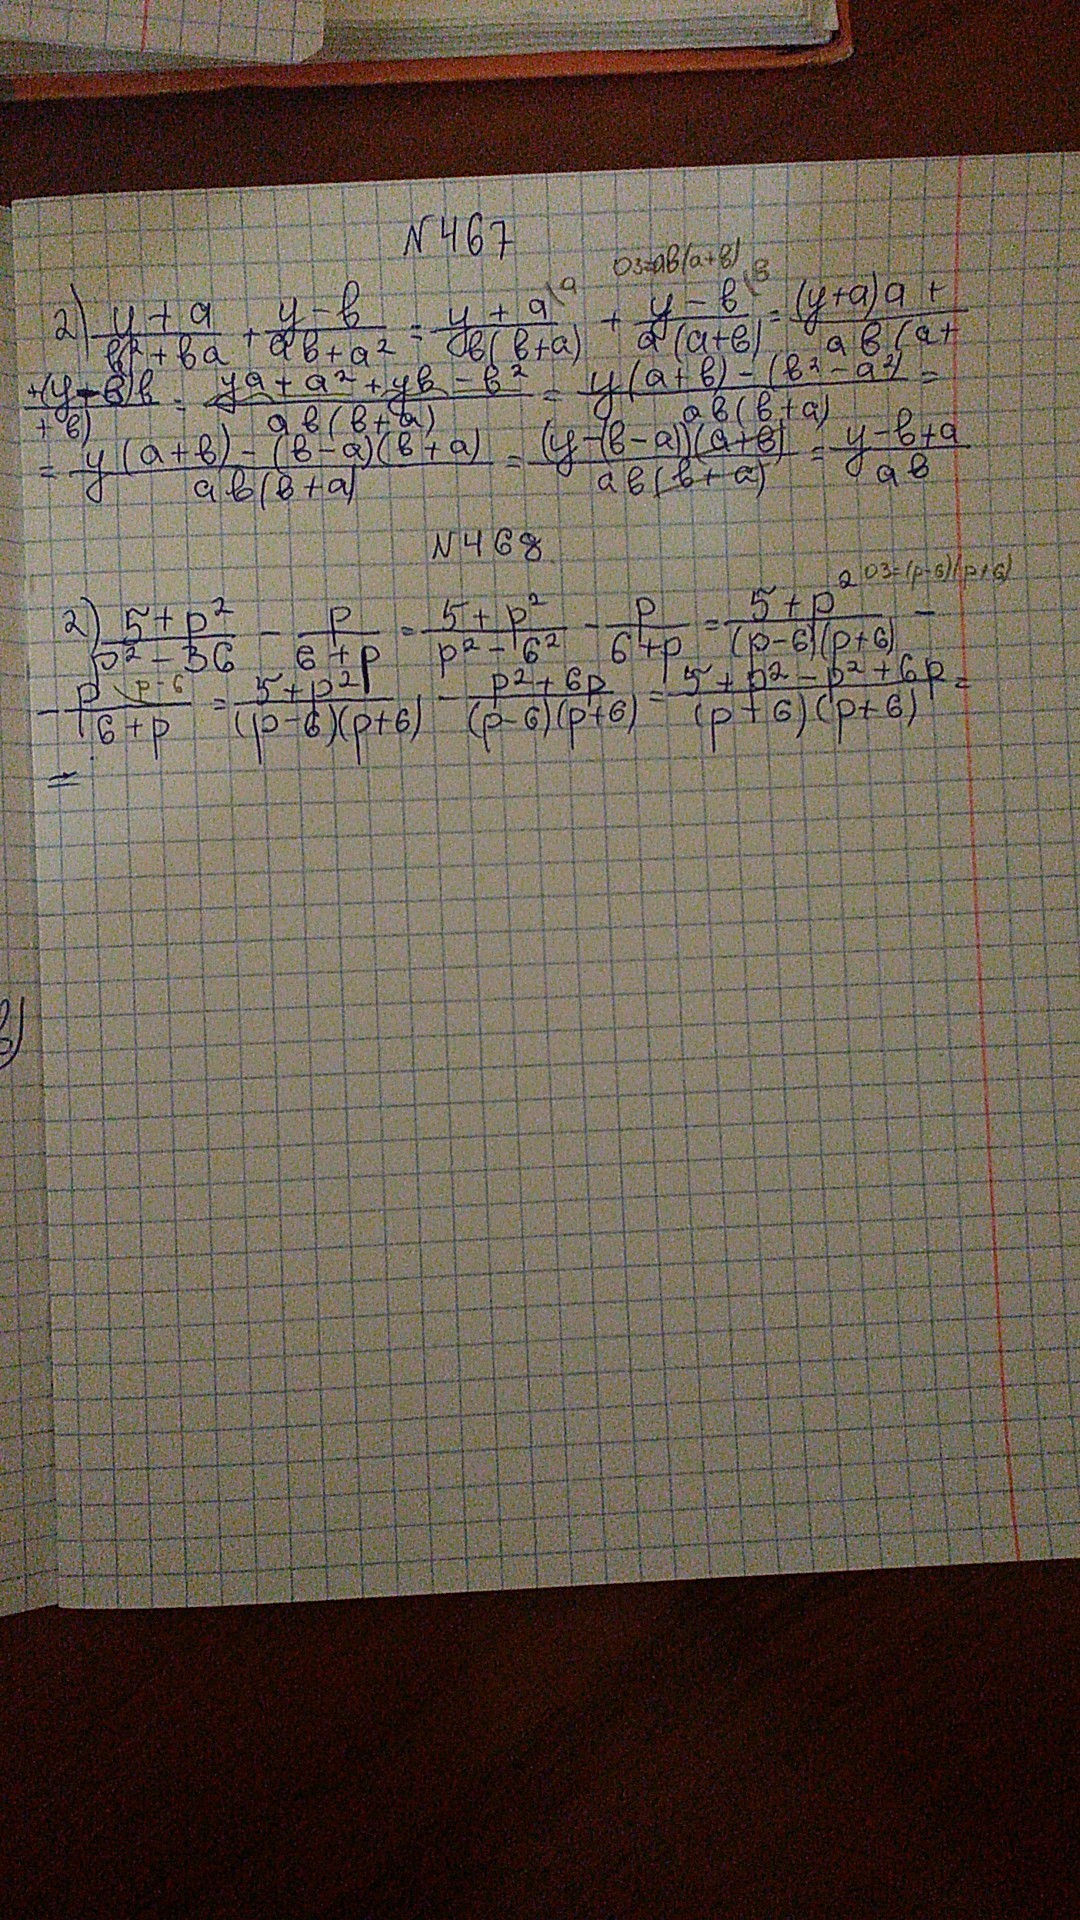 N467
ОЗ=ab(a+b)
2) (y+a)/(b²+ba) + (y-b)/(ab+a²) = (y+a\a)/(b(b+a)) + (y-b\b)/(a(a+b)) = ((y+a)a+)/(ab(a+
(+(y-b)b)/(+b)) = (ya+a²+yb-b²)/(ab(b+a)) = (y(a+b)-(b²-a²))/(ab(b+a)) =
= (y(a+b)-(b-a)(b+a))/(ab(b+a)) = ((y-(b-a))(a+b))/(ab(b+a)) = (y-b+a)/(ab)
N468
ОЗ=(p-6)(p+6)
2) (5+p²)/(p²-36) - p/(6+p) = (5+p²)/(p²-6²) - p/(6+p) = (5+p²)/((p-6)(p+6)) -
- (p\p-6)/(6+p) = (5+p²)/((p-6)(p+6)) - (p²+6p)/((p-6)(p+6)) = (5+p²-p²+6p)/((p+6)(p+6)) =
=
в)